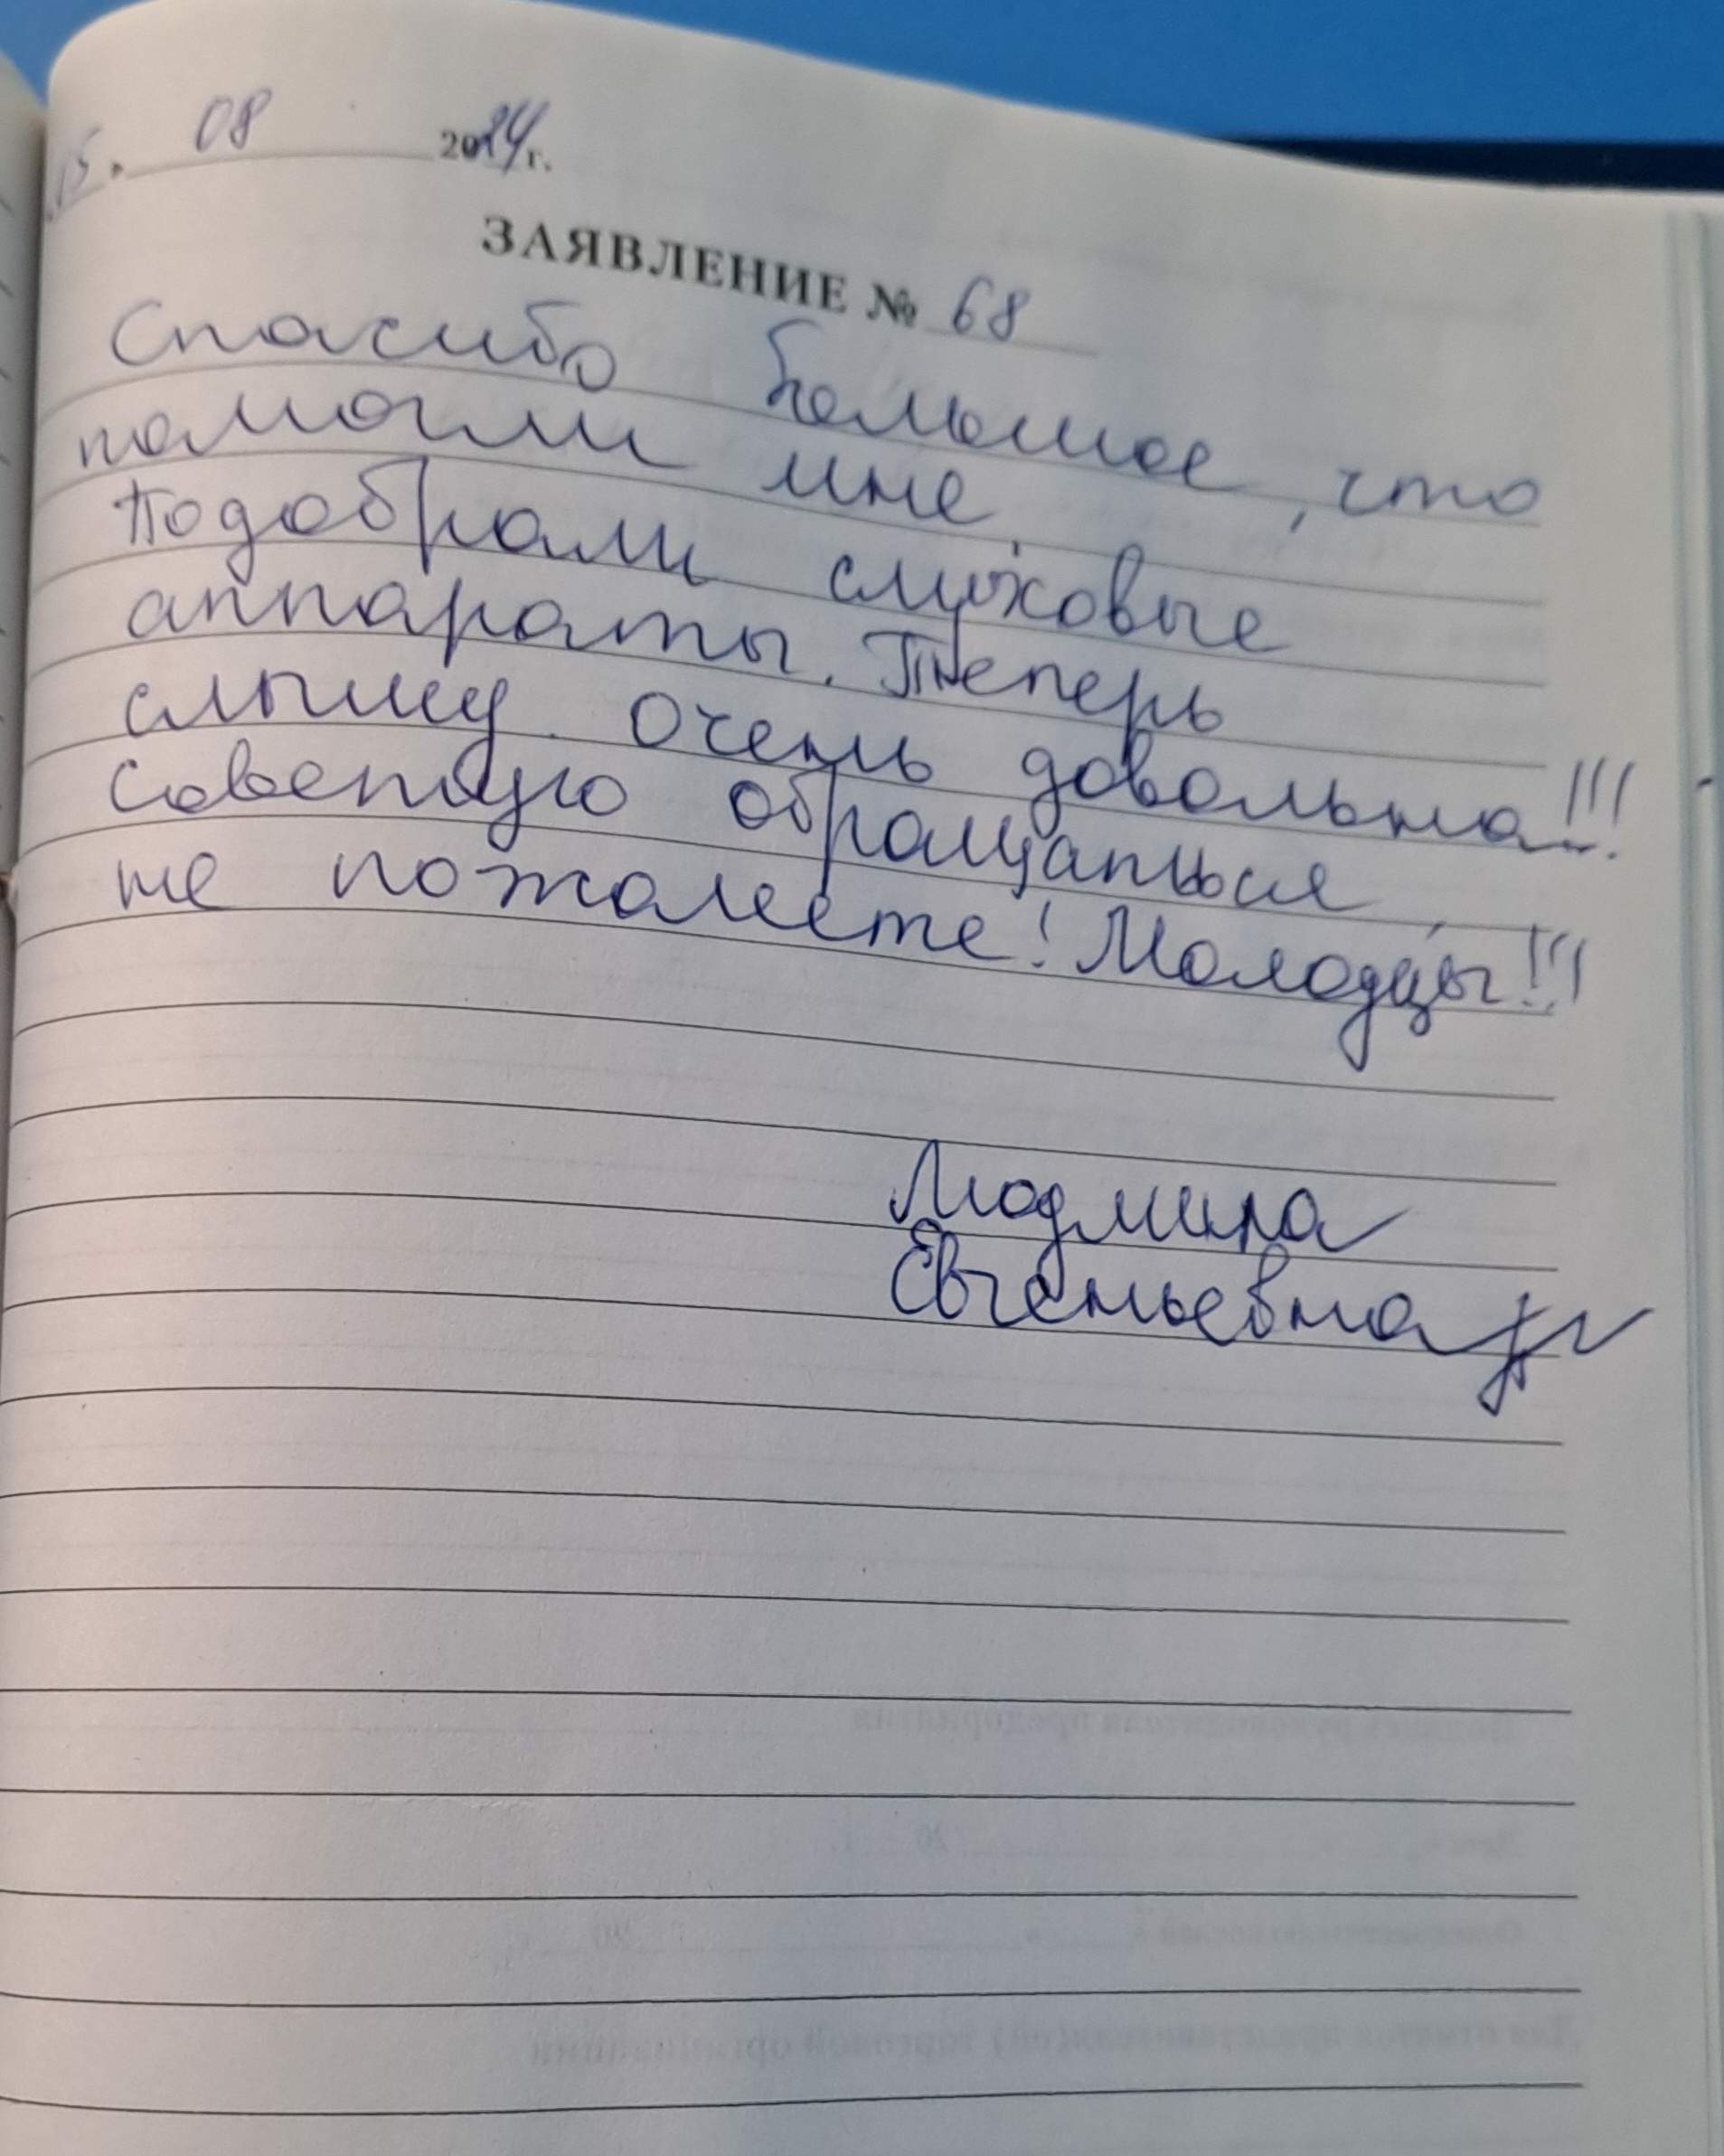 15. 08 2024г.
ЗАЯВЛЕНИЕ № 68
Спасибо большое, что
помогли мне.
Подобрали слуховые
аппараты. Теперь
слышу. Очень довольна!!!
Советую обращаться,
не пожалеете! Молодцы!!!
Людмила
Евгеньевна